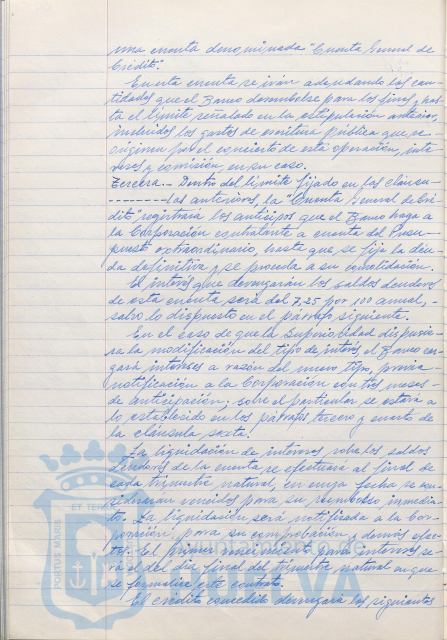 una cuenta denominada "Cuenta General de
Crédito".
En esta cuenta se irán adeudando las can-
tidades que el Banco desembolse para los fines y has-
ta el límite señalado en la estipulación anterior,
incluidos los gastos de escritura pública que se
originen por el concierto de esta operación, inte-
reses y comisión en su caso.
Tercera.- Dentro del límite fijado en las cláusu-
--------las anteriores, la "Cuenta General de Cré-
dito" registrará los anticipos que el Banco haga a
la Corporación contratante a cuenta del Presu-
puesto extraordinario, hasta que se fije la deu-
da definitiva y se proceda a su consolidación.
El interés que devengarán los saldos deudores
de esta cuenta será del 7,25 por 100 annual,-
salvo lo dispuesto en el párrafo siguiente.
En el caso de que la Superioridad dispusie-
ra la modificación del tipo de interés, el Banco car-
gará intereses a razón del nuevo tipo, previa-
notificación a la Corporación con tres meses-
de anticipación; sobre el particular se estará a
lo establecido en los párrafos tercero y cuarto de
la cláusula sexta.
La liquidación de intereses sobre los saldos
deudores de la cuenta se efectuará al final de
cada trimestre natural, en cuya fecha se con-
siderarán vencidos para su reembolso inmedia-
to. La liquidación será notificada a la Cor-
poración, para su comprobación y demás efec-
tos. El primer vencimiento para intereses se-
rá el del día final del trimestre natural en que
se formalice este contrato.
El crédito concedido devengará los siguientes
PORTUS MARIS
ET TERRÆ